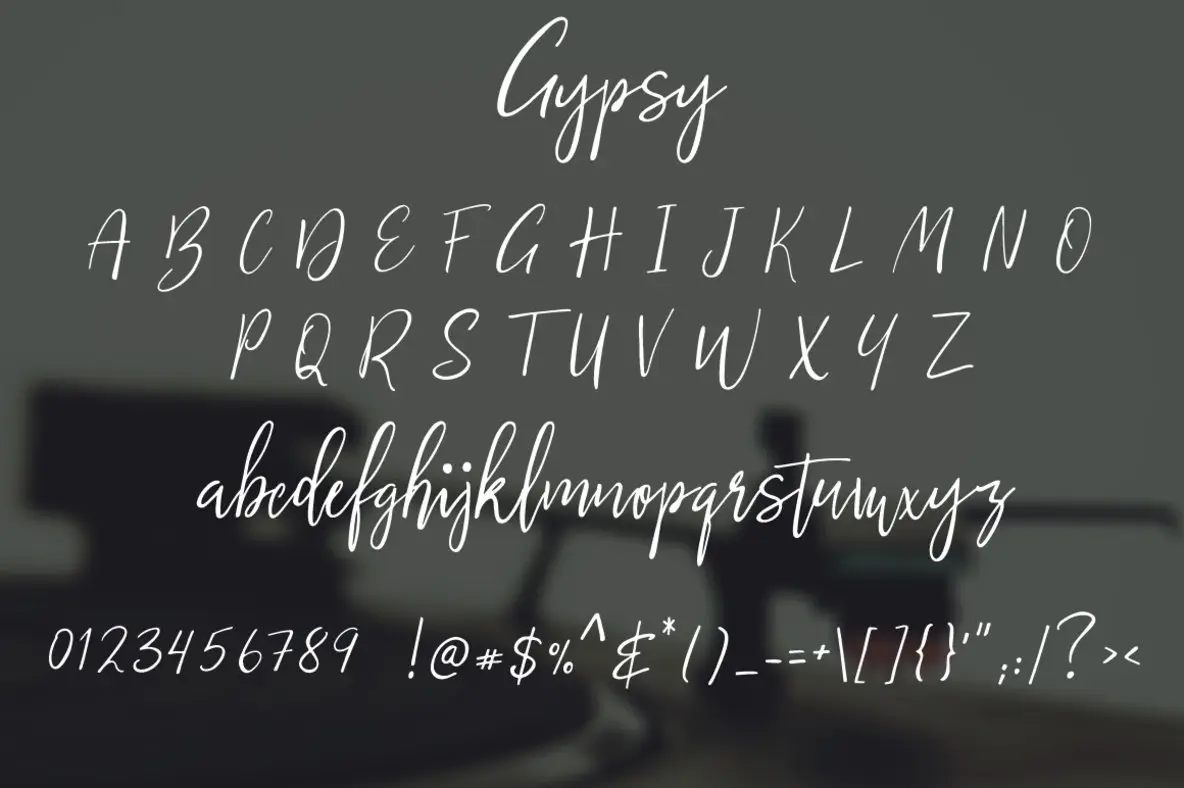 Gypsy
A B C D E F G H I J K L M N O
P Q R S T U V W X Y Z
abcdefghijklmnopqrstuvwxyz
0123456789 !@#$%^&*()_-=+\[]{}'";:/?><